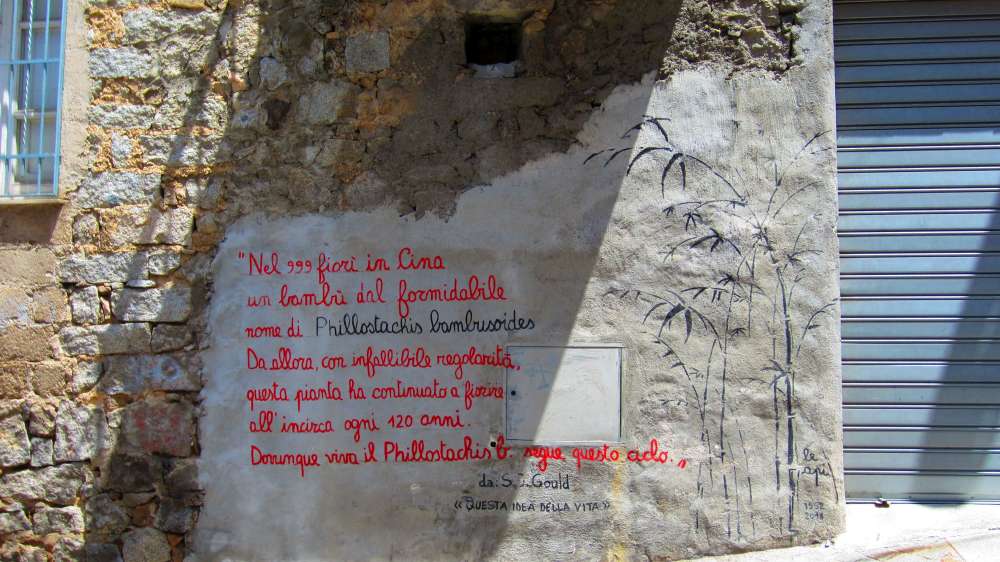 "Nel 999 fiorì in Cina
un bambù dal formidabile
nome di Phillostachis bambusoides
Da allora, con infallibile regolarità,
questa pianta ha continuato a fiorire
all'incirca ogni 120 anni.
Dorunque viva il Phillostachis b. segue questo ciclo."
da: S. J. Gould
«QUESTA IDEA DELLA VITA»
le
api
1992
2018